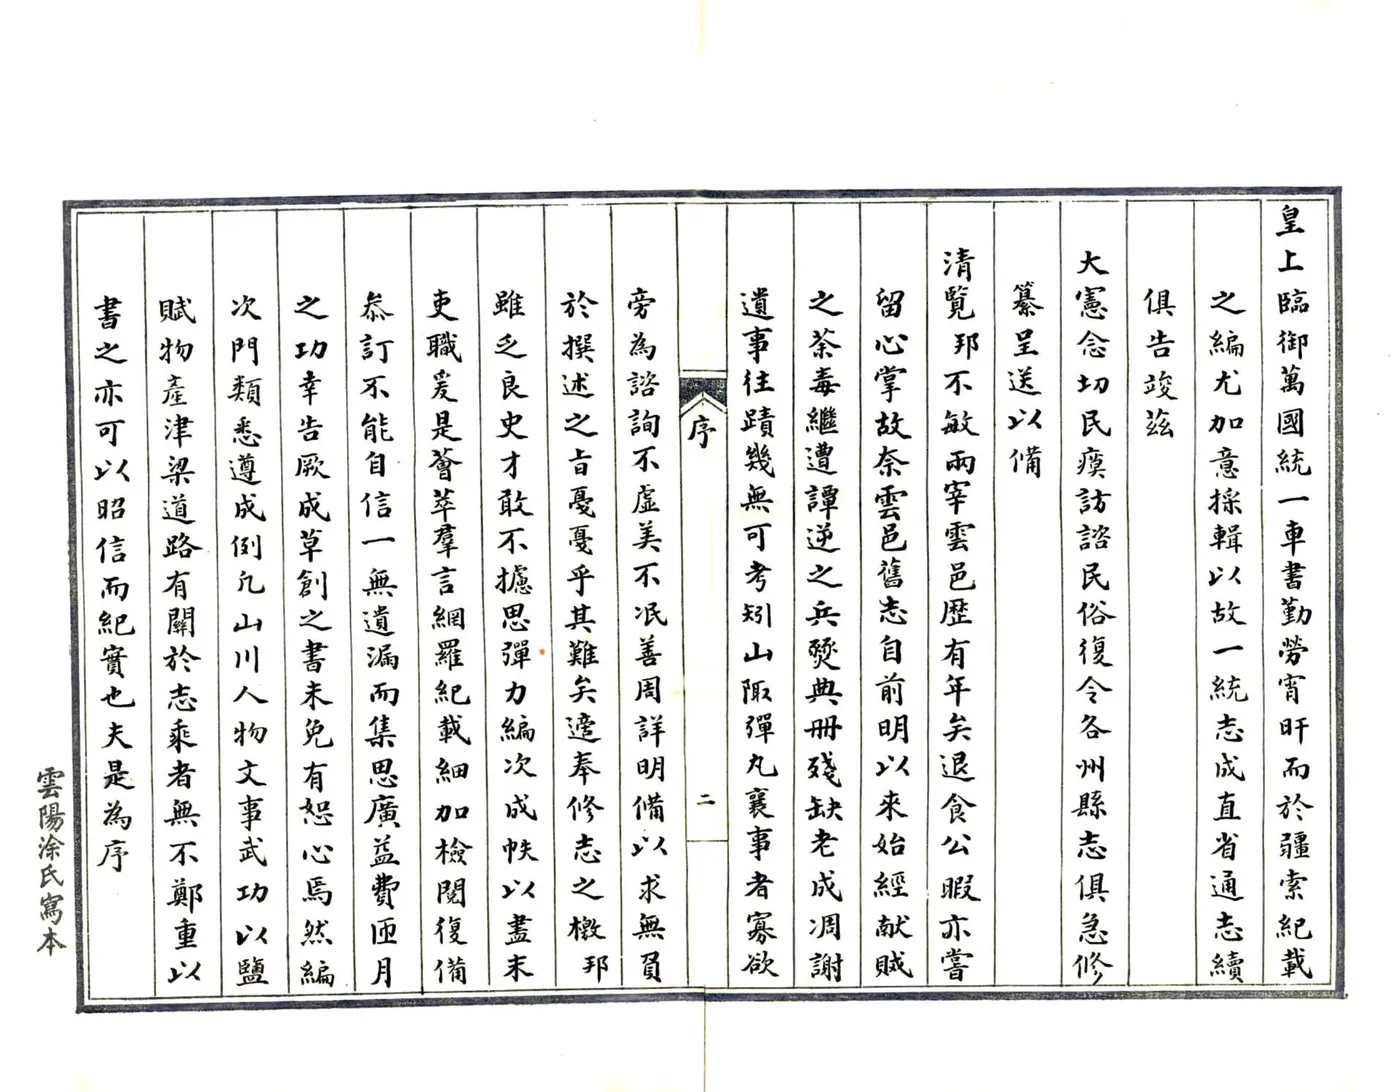 皇上臨御萬國統一車書勤勞宵旰而於疆索紀載
之編尤加意採輯以故一統志成直省通志續
俱告竣茲
大憲念切民瘼訪諮民俗復令各州縣志俱急修
纂呈送以備
清覽邦不敏兩宰雲邑歷有年矣退食公暇亦嘗
留心掌故奈雲邑舊志自前明以來始經献賊
之荼毒繼遭譚逆之兵燹典冊殘缺老成凋謝
遺事往蹟幾無可考矧山陬彈丸襄事者寡欲
序
二
旁為諮詢不虛美不泯善周詳明備以求無負
於撰述之旨戛戛乎其難矣適奉修志之檄邦
雖乏良史才敢不攄思彈力編次成帙以盡末
吏職爰是薈萃羣言網羅紀載細加檢閱復備
叅訂不能自信一無遺漏而集思廣益費匝月
之功幸告厥成草創之書未免有恕心焉然編
次門類悉遵成例凡山川人物文事武功以鹽
賦物產津梁道路有關於志乘者無不鄭重以
書之亦可以昭信而紀實也夫是為序
雲陽涂氏寫本